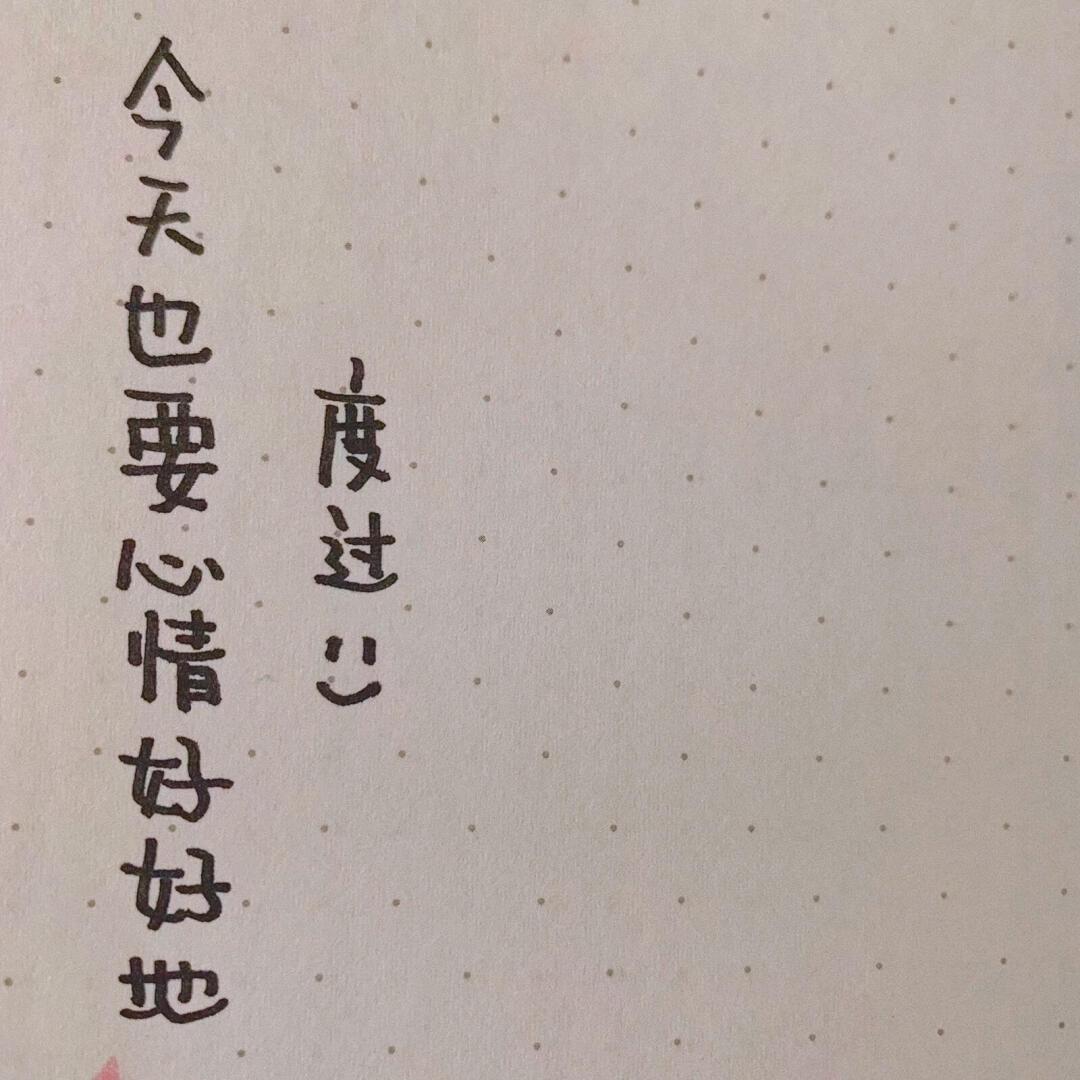 今天也要心情好好地
度过